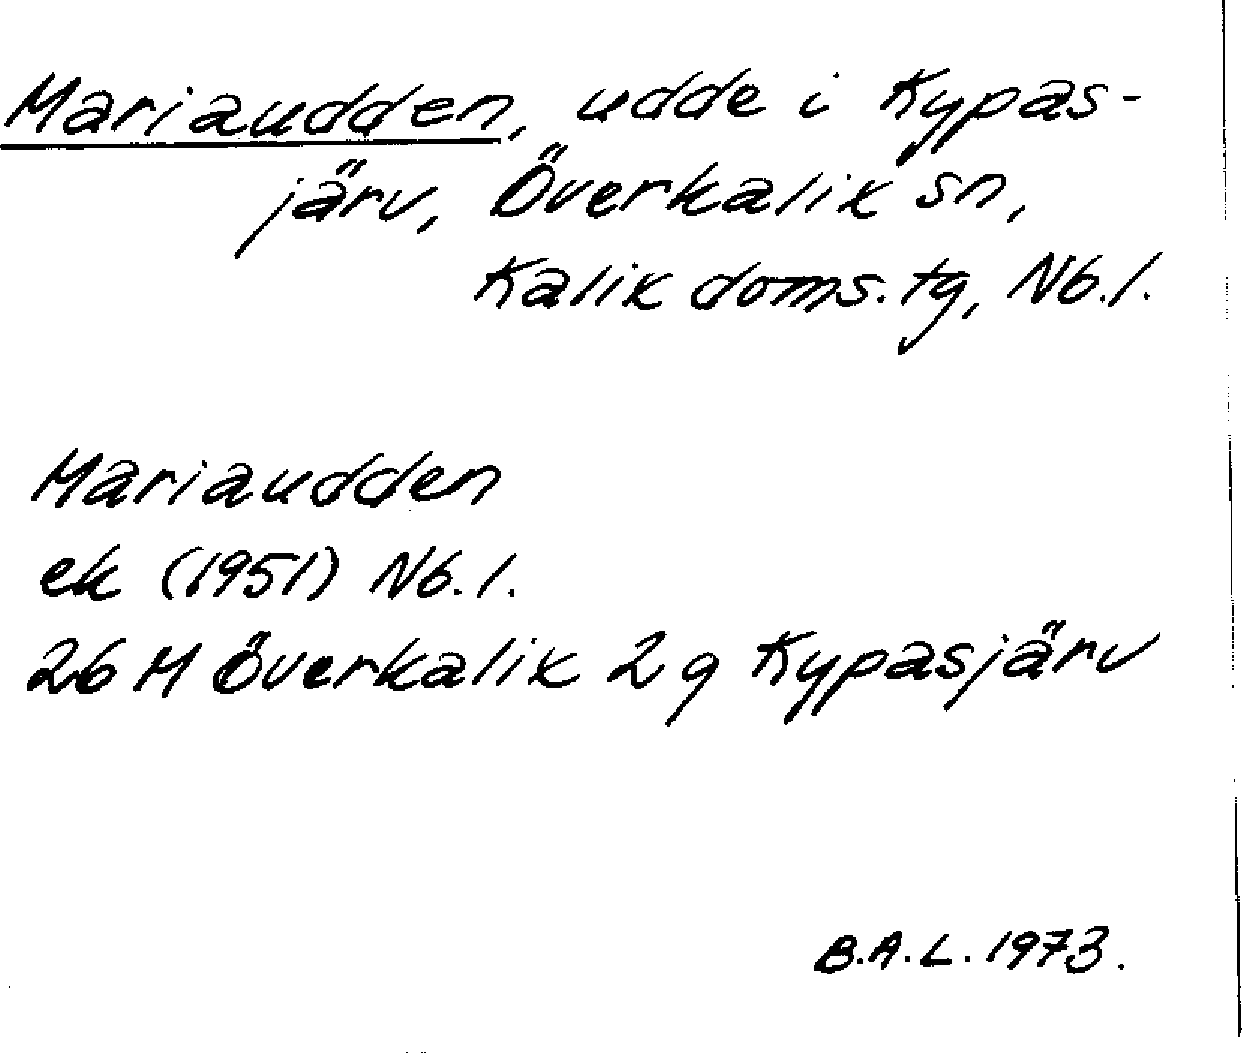 Mariaudden, udde i Kypas-
järv, Överkalix sn,
Kalix doms.tg, Nb.l.
Mariaudden
ek (1951) Nb.l.
26 M Överkalix 2 g Kypasjärv
B.A.L. 1973.